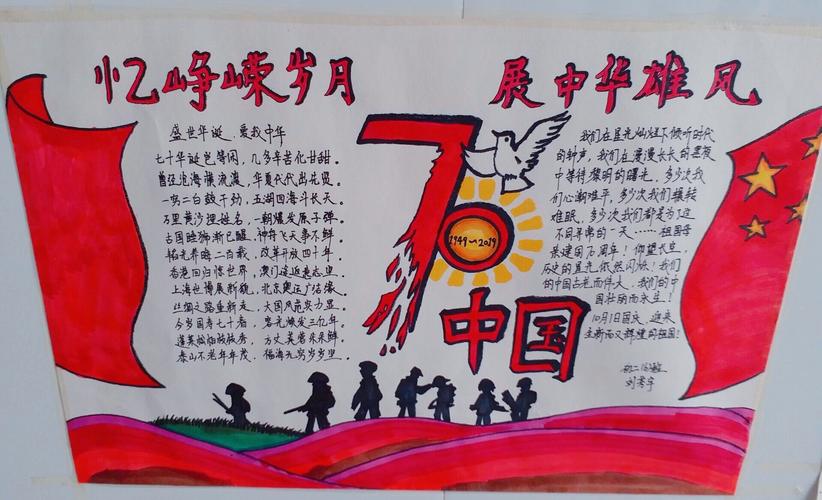 忆峥嵘岁月
展中华雄风
盛世华诞 爱我中华
七十华诞岂等闲，几多辛苦化甘甜。
曾经沧海横流渡，华夏代代出花贤。
一穷二白鼓干劲，五湖四海斗长天。
万里黄沙埋姓名，一朝爆发原子弹。
古国睡狮渐已醒，神舟飞天事不鲜。
韬光养晦二百载，改革开放四十年。
香港回归惊世界，澳门返
上海世博展新貌，北京奥运广结缘。
丝绸之路重新走，大国风范实力显。
今岁国寿七十春，
泰山不老年年茂，福海无穷岁岁
70
1949~2019
中国
我们在星光灿烂下倾听时代
的钟声，我们在漫漫长长的黑夜
中等待黎明的曙光，多少次我
们心潮难平，多少次我们辗转
难眠，多少次我们都是为了这
不同寻常的一天……祖国母
亲建国70周年！仰望长空，
历史的星光依然闪烁！我们
的中国古老而伟大，我们的中
国壮丽而永生！
10月1日国庆，迎来
全新而又辉煌的祖国！
初二
刘